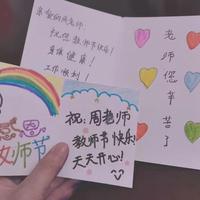 亲爱的周老师：
祝您教师节快乐！
身体健康！
工作顺利！
老
师
您
辛
苦
了
祝：周老师
教师节快乐！
天天开心！
教师节